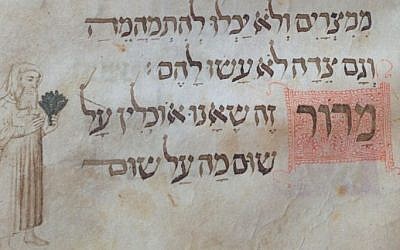 מִמִּצְרַיִם וְלֹא יָכְלוּ לְהִתְמַהְמֵהַּ
וְגַם צֵדָה לֹא עָשׂוּ לָהֶם׃
מָרוֹר זֶה שֶׁאָנוּ אוֹכְלִין עַל
שׁוּם מָה עַל שׁוּם